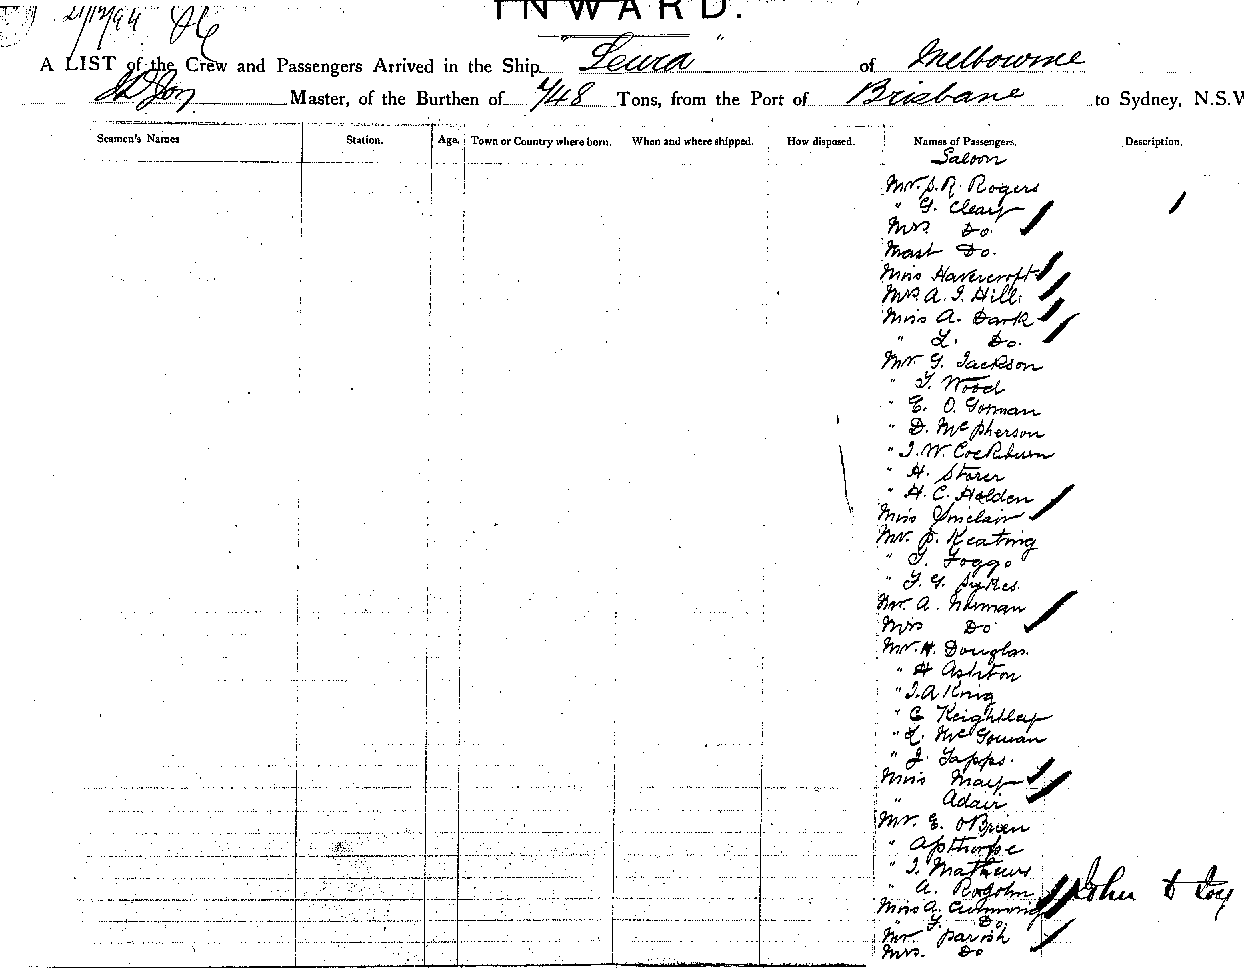 21/12/94
INWARD.
A LIST of the Crew and Passengers Arrived in the Ship "Leura" of Melbourne
Master, of the Burthen of Tons, from the Port of Brisbane to Sydney, N.S.W
Seamen's Names Station. Age. Town or Country where born. When and where shipped. How disposed. Names of Passengers. Description.
Saloon
Mr. S. R. Rogers
" G. Cleary
Mrs Do.
Mast Do.
Miss Havercroft
Mrs A. J. Hill
Miss A. Dark
" L. Do.
Mr G. Jackson
" T. Wood
" E. O. Gorman
" D. McPherson
" J. W. Cockburn
" H. Storer
" H. C. Holden
Miss Sinclair
Mr. P. Keating
" T. Foggo
" F. G. Sykes.
Mr. A. Newman
Mrs Do
Mr. H. Douglas.
" H Ashton
" J. A King
" C Keightley
" L. McGowan
" J. Tapps.
Miss May
" Adair
Mr. E. OBrien
" Apthorpe
" J. Mathews
" A.
Miss A.
" Do
Mr. Parish
Mrs. Do
John